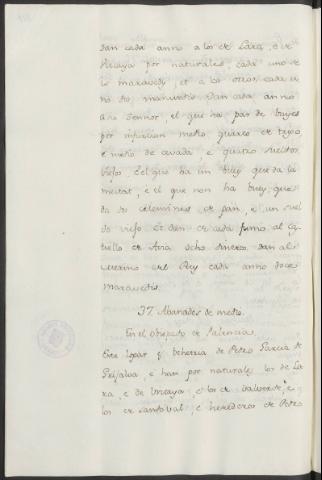 dan cada anno a los de Lara, e de
Vizcaya por naturales, cada uno se
is maravedy, et a los otros cada u
no dos maravedis. Dan cada anno
a so Sennor, el que ha par de bueyes
por infurcion medio quarto de trigo,
e medio de cevada e quatro sueldos
viejos. E el que ha un buey que da la
meitat, e el que non ha buey que
da dos celemines de pan, e un suel
do viejo. Et dan de cada fumo al ca
stiello de Aria ocho dineros. dan al
Merino del Rey cada anno doce
maravedis.
37. Abanades de medio.
En el obispado de Palencia.
Este logar es behetria de Pedro Garcia de
Grijalva, e han por naturales los de La
ra, e de Vizcaya, e los de Valverde, e
los de Sandoval e herederos de Pedro